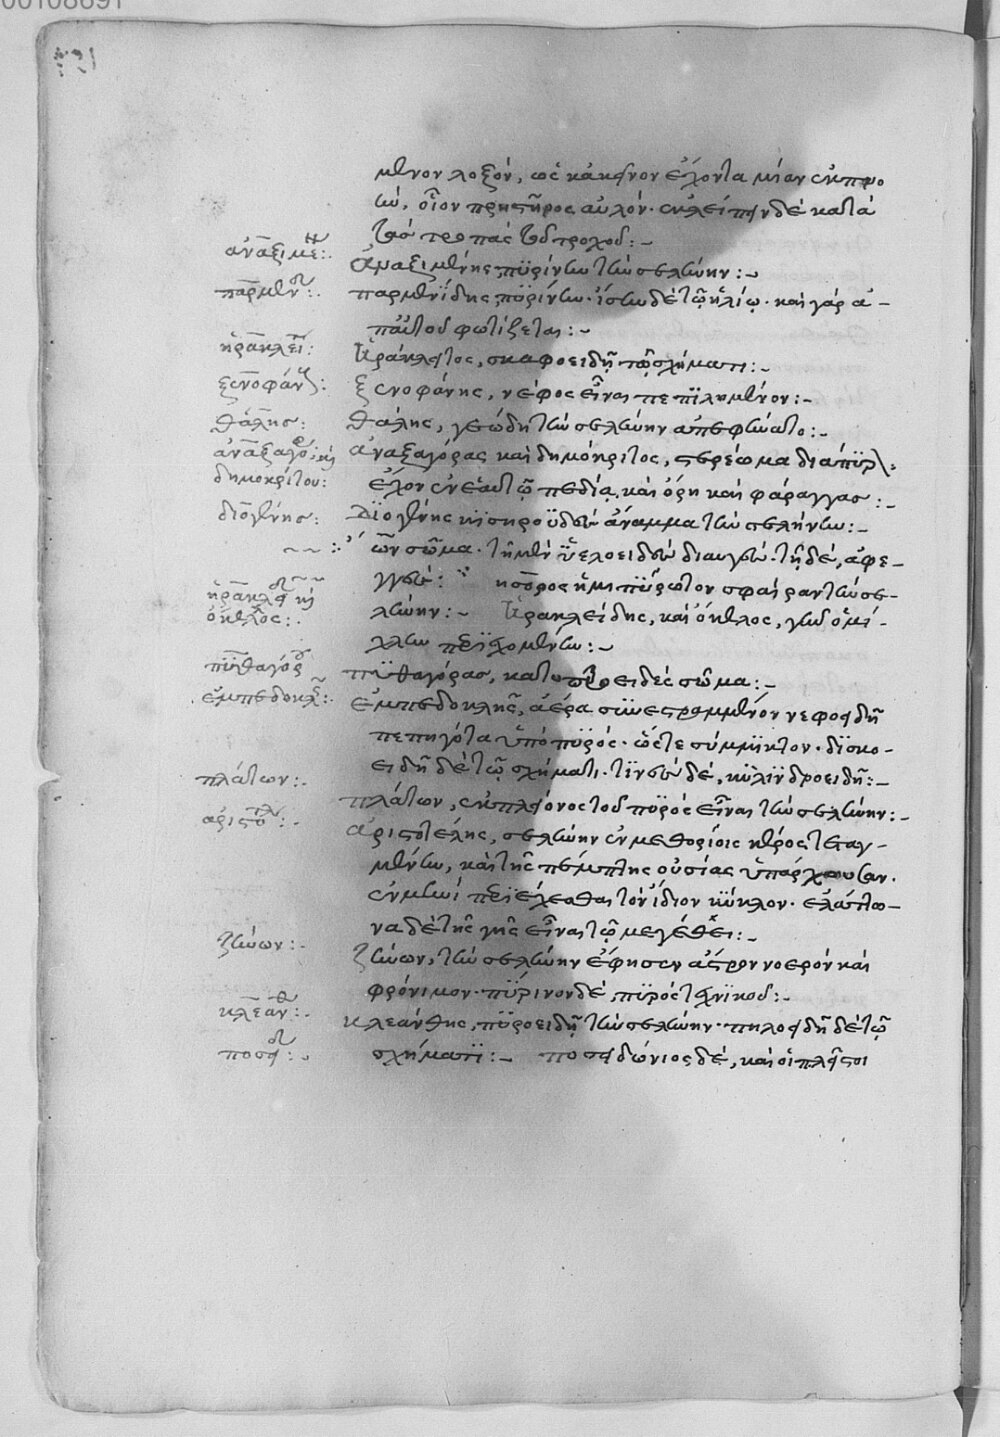 μενον λοξόν, ὡς κἀκεῖνον ἔχοντα μίαν ἐκπνο
ὴν, οἷον πρηστῆρος αὐλόν· ἐκλείπειν δὲ κατὰ
τὰς τροπὰς τοῦ τροχοῦ:-
ἀναξιμέν:- Ἀναξιμένης, πυρίνην τὴν σελήνην:-
παρμεν:- παρμενίδης πυρίνην· ἴσην δὲ τῷ ἡλίῳ· καὶ γὰρ ἀ-
π' αὐτοῦ φωτίζεται:-
ἡράκλει: Ἡράκλειτος, σκαφοειδῆ τῷ σχήματι:-
ξενοφάνης: ξενοφάνης, νέφος εἶναι πεπιλημένον:-
θάλης: θάλης, γεώδη τὴν σελήνην ἀπεφήνατο:-
ἀναξαγό, καὶ ἀναξαγόρας καὶ δημόκριτος, στερέωμα διάπυρ:
δημοκρίτου: ἔχον ἐν ἑαυτῷ πεδία, καὶ ὄρη καὶ φάραγγας:-
διογένης: Διογένης κισηροϋδὲς ἄναμμα τὴν σελήνην:-
ὧν σῶμα· τῆ μὲν ὑελοειδὲς διαυγές· τῆ δέ, ἀφε-
γγές: πυρῶτον σφαῖραν τὴν σε-
ἡρακλεί καὶ λήνην:- Ἡρακλείδης, καὶ ὄκελος, γῆν ὁμί-
ὄκελλος:- χλη περιεχομένην:-
πυθαγόρ πυθαγόρας, κατοπτροειδὲς σῶμα:-
ἐμπεδοκλ:- ἐμπεδοκλῆς, ἀέρα συνεστραμμένον νεφοειδῆ
πεπηγότα ὑπὸ πυρός· ὥστε σύμμικτον· δισκο-
ειδῆ δὲ τῷ σχήματι· τινὲς δέ, κυλινδροειδῆ:-
πλάτων:- πλάτων, ἐκ πλείονος τοῦ πυρὸς εἶναι τὴν σελήνην:-
ἀριστοτλ:- ἀριστοτέλης, σελήνην ἐν μεθορίοις ἀέρος τεταγ-
μένην, καὶ τῆς πέμπτης οὐσίας ὑπάρχουσαν.
περιέχεσθαι τὸν ἴδιον κύκλον· ἐλάττο-
να δὲ τῆς γῆς εἶναι τῷ μεγέθει:-
ζήνων:- ζήνων, τὴν σελήνην ἔφησεν ἄστρον νοερὸν καὶ
φρόνιμον· πύρινον δέ, πυρὸς τεχνικοῦ:-
κλεάνθ:- κλεάνθης, πυροειδῆ τὴν σελήνην· πηλοειδῆ δὲ τῷ
ποσει:- σχήματι:- ποσειδώνιος δέ, καὶ οἱ πλεῖστοι